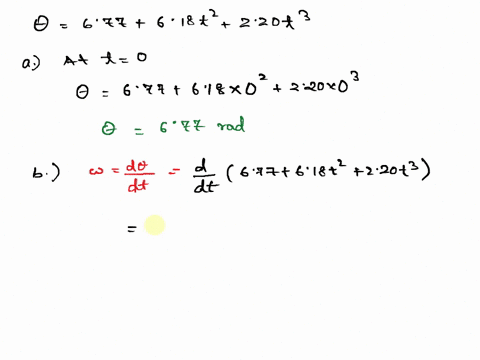 θ = 6.77 + 6.18t² + 2.20t³
a.) At t = 0
θ = 6.77 + 6.18 × 0² + 2.20 × 0³
θ = 6.77 rad
b.) ω = dθ/dt = d/dt (6.77 + 6.18t² + 2.20t³)
=